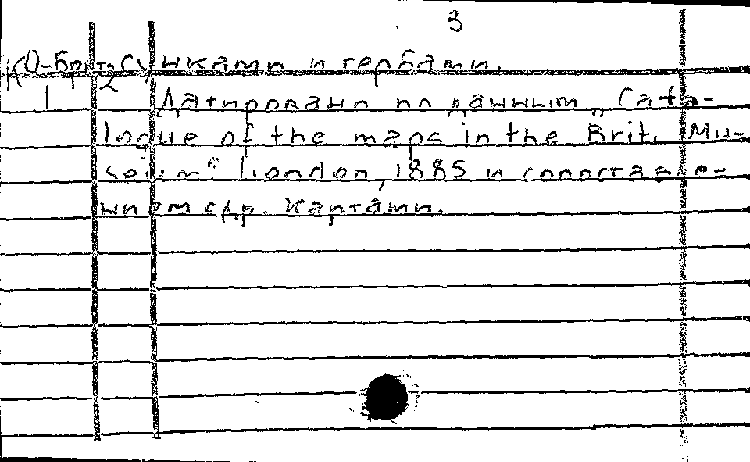 3
КО-Брит2 сунками и гербами.
1 Датировано по данным „Cata-
logue of the maps in the Brit. Mu-
seum" London, 1885 и сопоставле-
нием с др. картами.